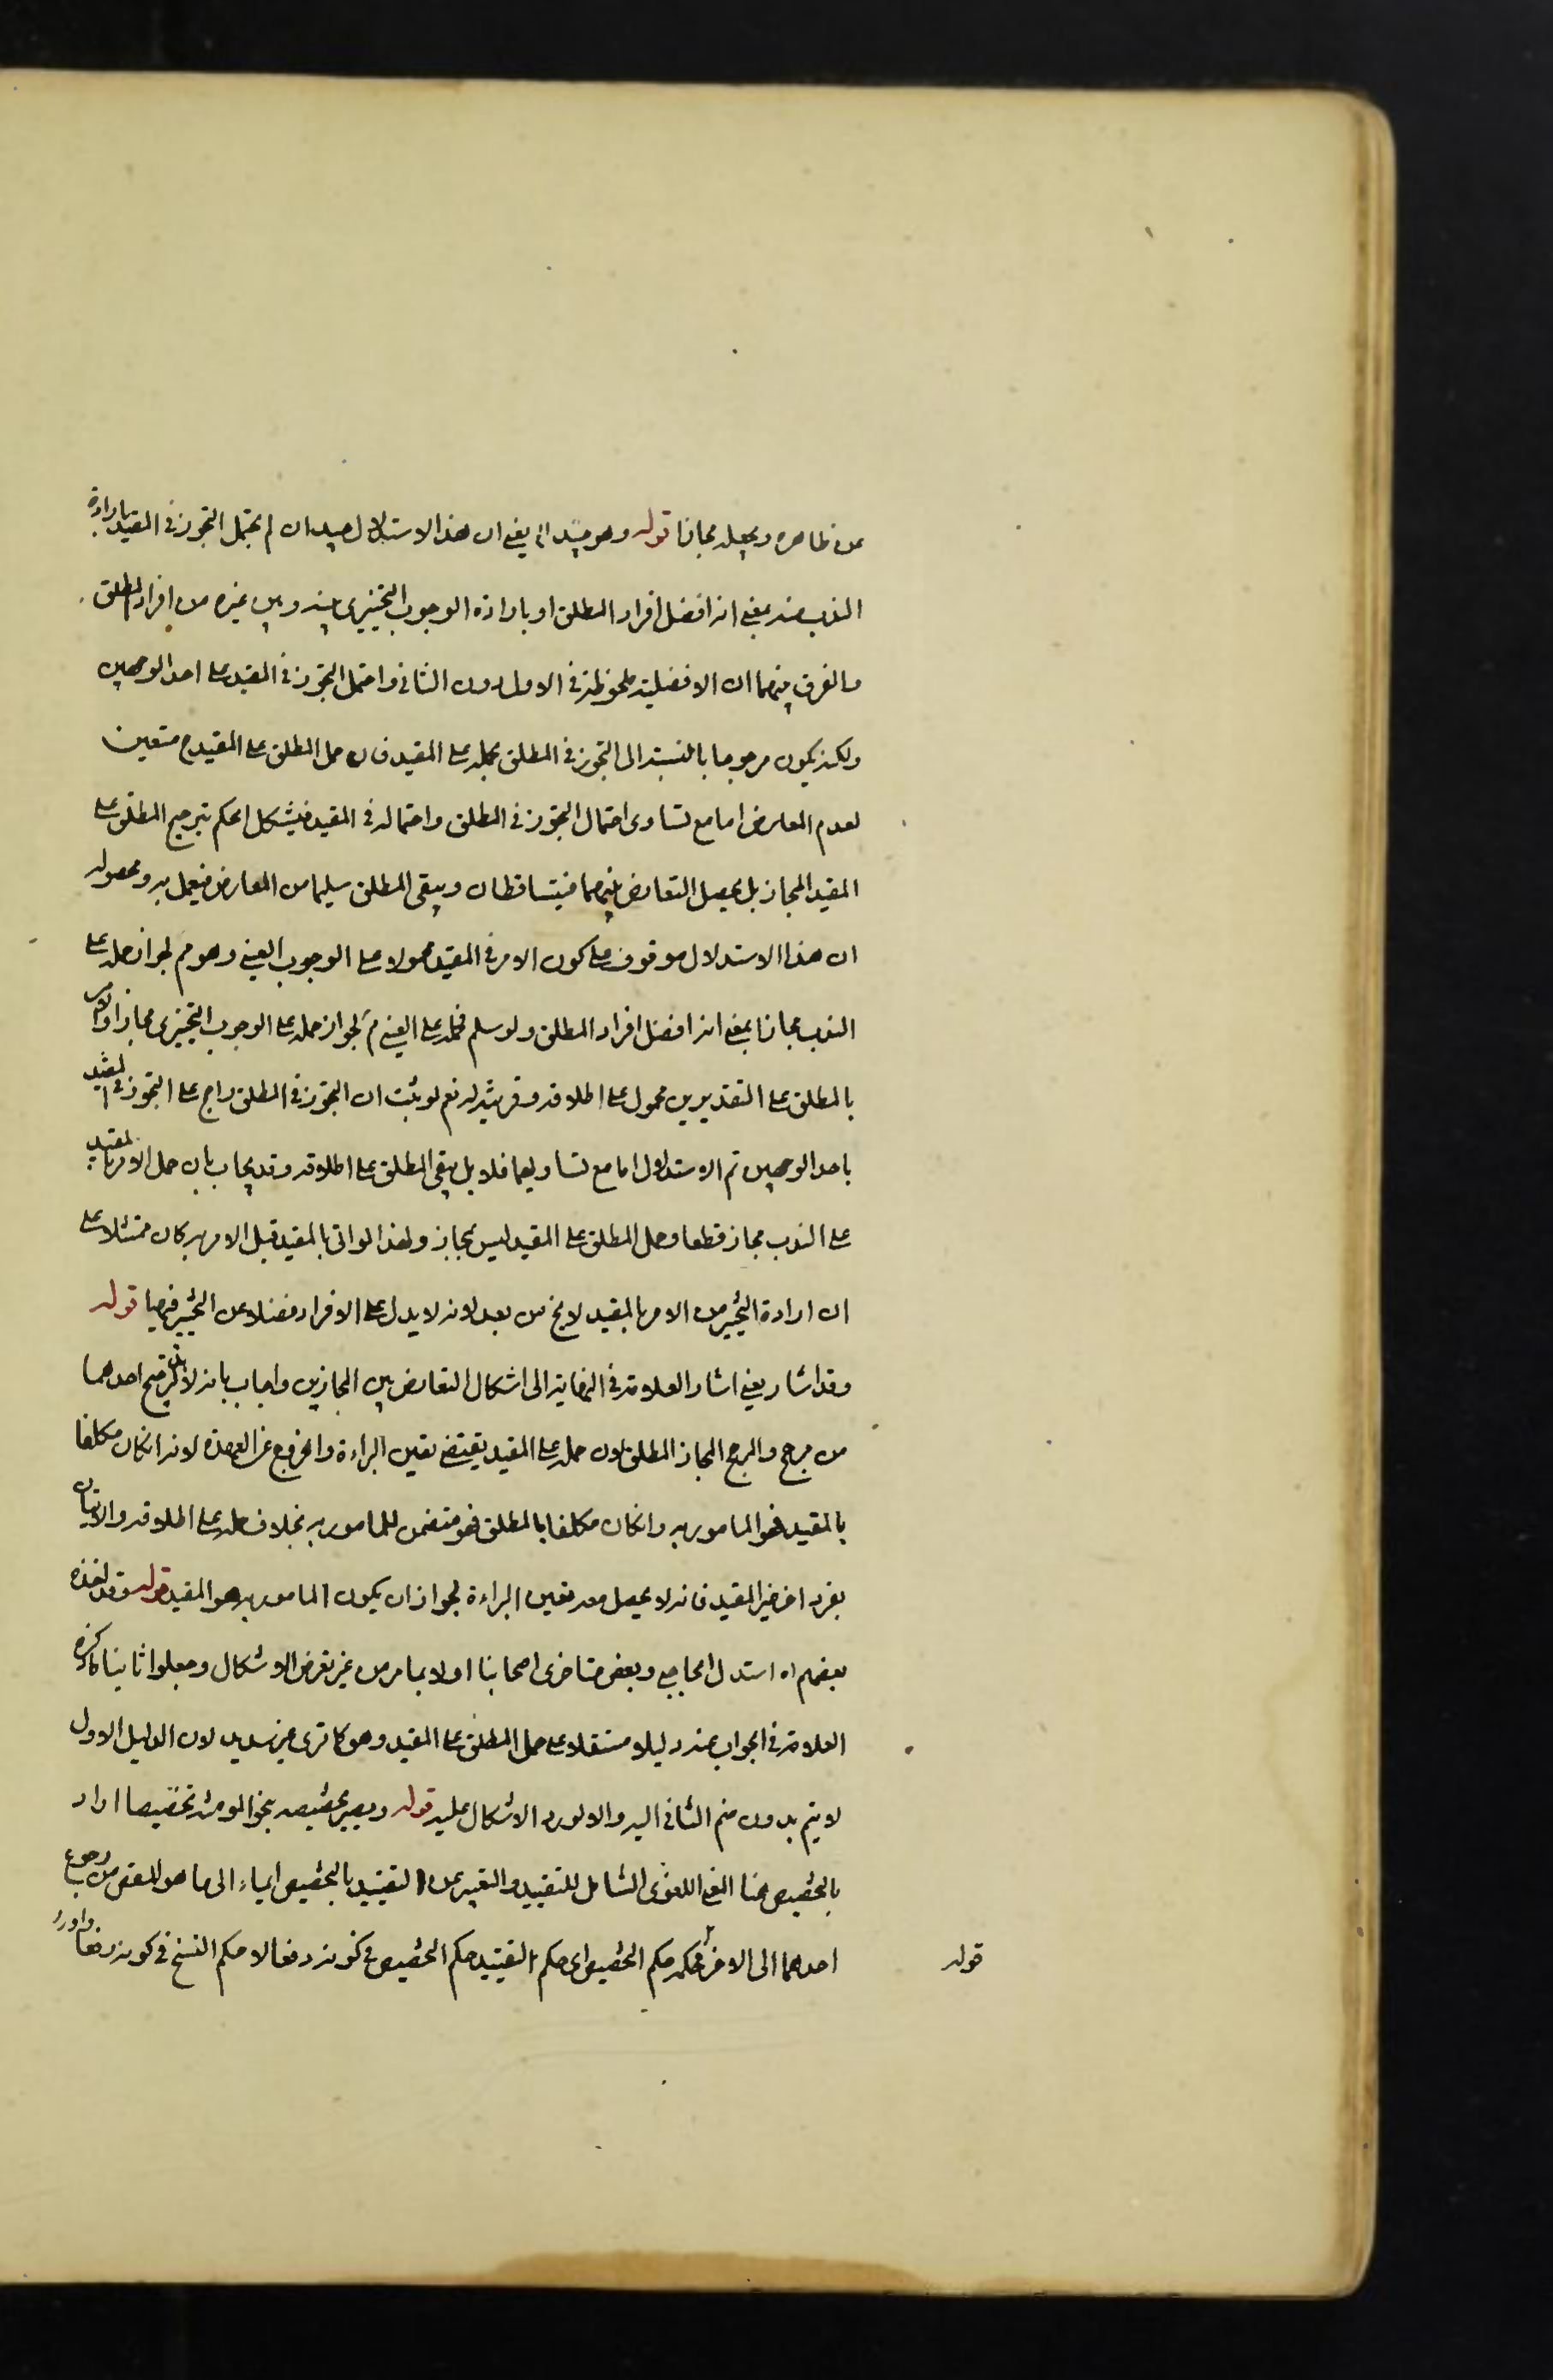 عن ظاهره ويجعله مجازا قوله وهو جيد اه يعنى ان هذا الاستدلال جيد ان لم يحتمل التجوز فى المقيد بارادة
الندب منه بمعنى انه افضل افراد المطلق او بارادة الوجوب التخييرى بينه وبين غيره من افراد المطلق
والفرق بينهما ان الافضلية ملحوظة فى الاول دون الثانى واحتمل التجوز فى المقيد على احد الوجهين
ولكنه يكون مرجوحا بالنسبة الى التجوز فى المطلق بحمله على المقيد فان حمل المطلق على المقيد ح متعين
لعدم المعارض اما مع تساوى احتمال التجوز فى المطلق واحتماله فى المقيد فيشكل الحكم بترجيح المطلق على
المقيد المجاز بل يحصل التعارض بينهما فيتساقطان ويبقى المطلق سليما من المعارض فيعمل به ومحصوله
ان هذا الاستدلال موقوف على كون الامر فى المقيد محمولا على الوجوب العينى وهو مم لجواز حمله على
الندب مجازا بمعنى انه افضل افراد المطلق ولو سلم فحمله على العينى مم لجواز حمله على الوجوب التخييرى مجازا والامر
بالمطلق على التقديرين محمول على اطلاقه وقرينة له نعم لو يثبت ان التجوز فى المطلق راجح على التجوز فى المقيد
باحد الوجهين تم الاستدلال اما مع تساويهما فلا بل يبقى المطلق على اطلاقه وقد يجاب بان حمل الامر بالمقيد
على الندب مجاز قطعا وحمل المطلق على المقيد ليس بمجاز ولهذا لو اتى بالمقيد قبل الامر به كان ممتثلا على
ان ارادة التخيير من الامر بالمقيد لا يخ من بعد لانه لا يدل على الافراد فضلا عن التخيير فيها قوله
وقد اشار يعنى اشار العلامة فى النهاية الى اشكال التعارض بين المجازين واجاب بانه لا بد لترجيح احدهما
من مرجح والمرجح المجاز المطلق لان حمله على المقيد يقتضى يقين البراءة والخروج عن العهدة لانه ان كان مكلفا
بالمقيد فهو المامور به وان كان مكلفا بالمطلق فهو متضمن للمامور به بخلاف حمله على اطلاقه والاتيان
بفرد اخر غير المقيد فانه لا يحصل معه يقين البراءة لجواز ان يكون المامور به هو المقيد قوله وقد اخذه
بعضهم اه استدل الحاجبى وبعض متاخرى اصحابنا اولا بما مر من غير تعرض الاشكال وجعلوا ثانيا ما ذكره
العلامة فى الجواب عنه دليلا مستقلا على حمل المطلق على المقيد وهو كما ترى غير سديد لان الدليل الاول
لا يتم بدون ضم الثانى اليه والا لورد الاشكال عليه قوله ويصير تخصيصه بنحو المؤمنة تخصيصا اراد
بالتخصيص هنا المعنى اللغوى الشامل للتقييد والتعبير عن التقييد بالتخصيص ايماء الى ما هو المقص من رجوع
احدهما الى الاخر فحكمه حكم التخصيص اى حكم التقييد حكم التخصيص فى كونه دفعا لا حكم النسخ فى كونه رفعا واورد
قوله